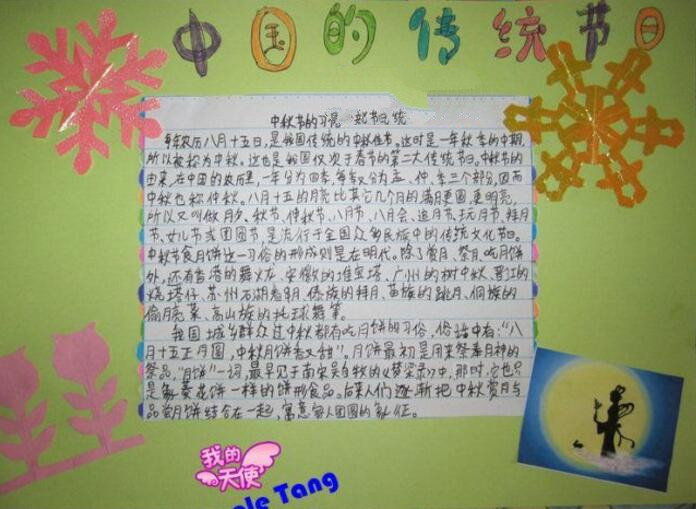 中国的传统节日
中秋节的习俗 起节日统
每年农历八月十五日,是我国传统的中秋佳节。这时是一年秋季的中期,
所以被称为中秋。这也是我国仅次于春节的第二大传统节日。中秋节的
由来,在中国的农历里,一年分为四季,每季又分为孟、仲、季三个部分,因而
中秋也称仲秋。八月十五的月亮比其它几个月的满月更圆,更明亮,
所以又叫做月夕、秋节、仲秋节、八月节、八月会、追月节、玩月节、拜月
节、女儿节或团圆节,是流行于全国众多民族中的传统文化节日。
中秋节食月饼这一习俗的形成则是在明代。除了赏月、祭月、吃月饼
外,还有香港的舞火龙、安徽的堆宝塔、广州的树中秋、晋江的
烧塔仔、苏州石湖看串月、傣族的拜月、苗族的跳月、侗族的
偷月亮菜、高山族的托球舞等。
我国城乡群众过中秋都有吃月饼的习俗,俗话中有:"八
月十五月正圆,中秋月饼香又甜"。月饼最初是用来祭奉月神的
祭品,"月饼"一词,最早见于南宋吴自牧的《梦粱录》中,那时,它也只
是象菱花饼一样的饼形食品。后来人们逐渐把中秋赏月与
品尝月饼结合在一起,寓意家人团圆的象征。
我的
天使
Tang